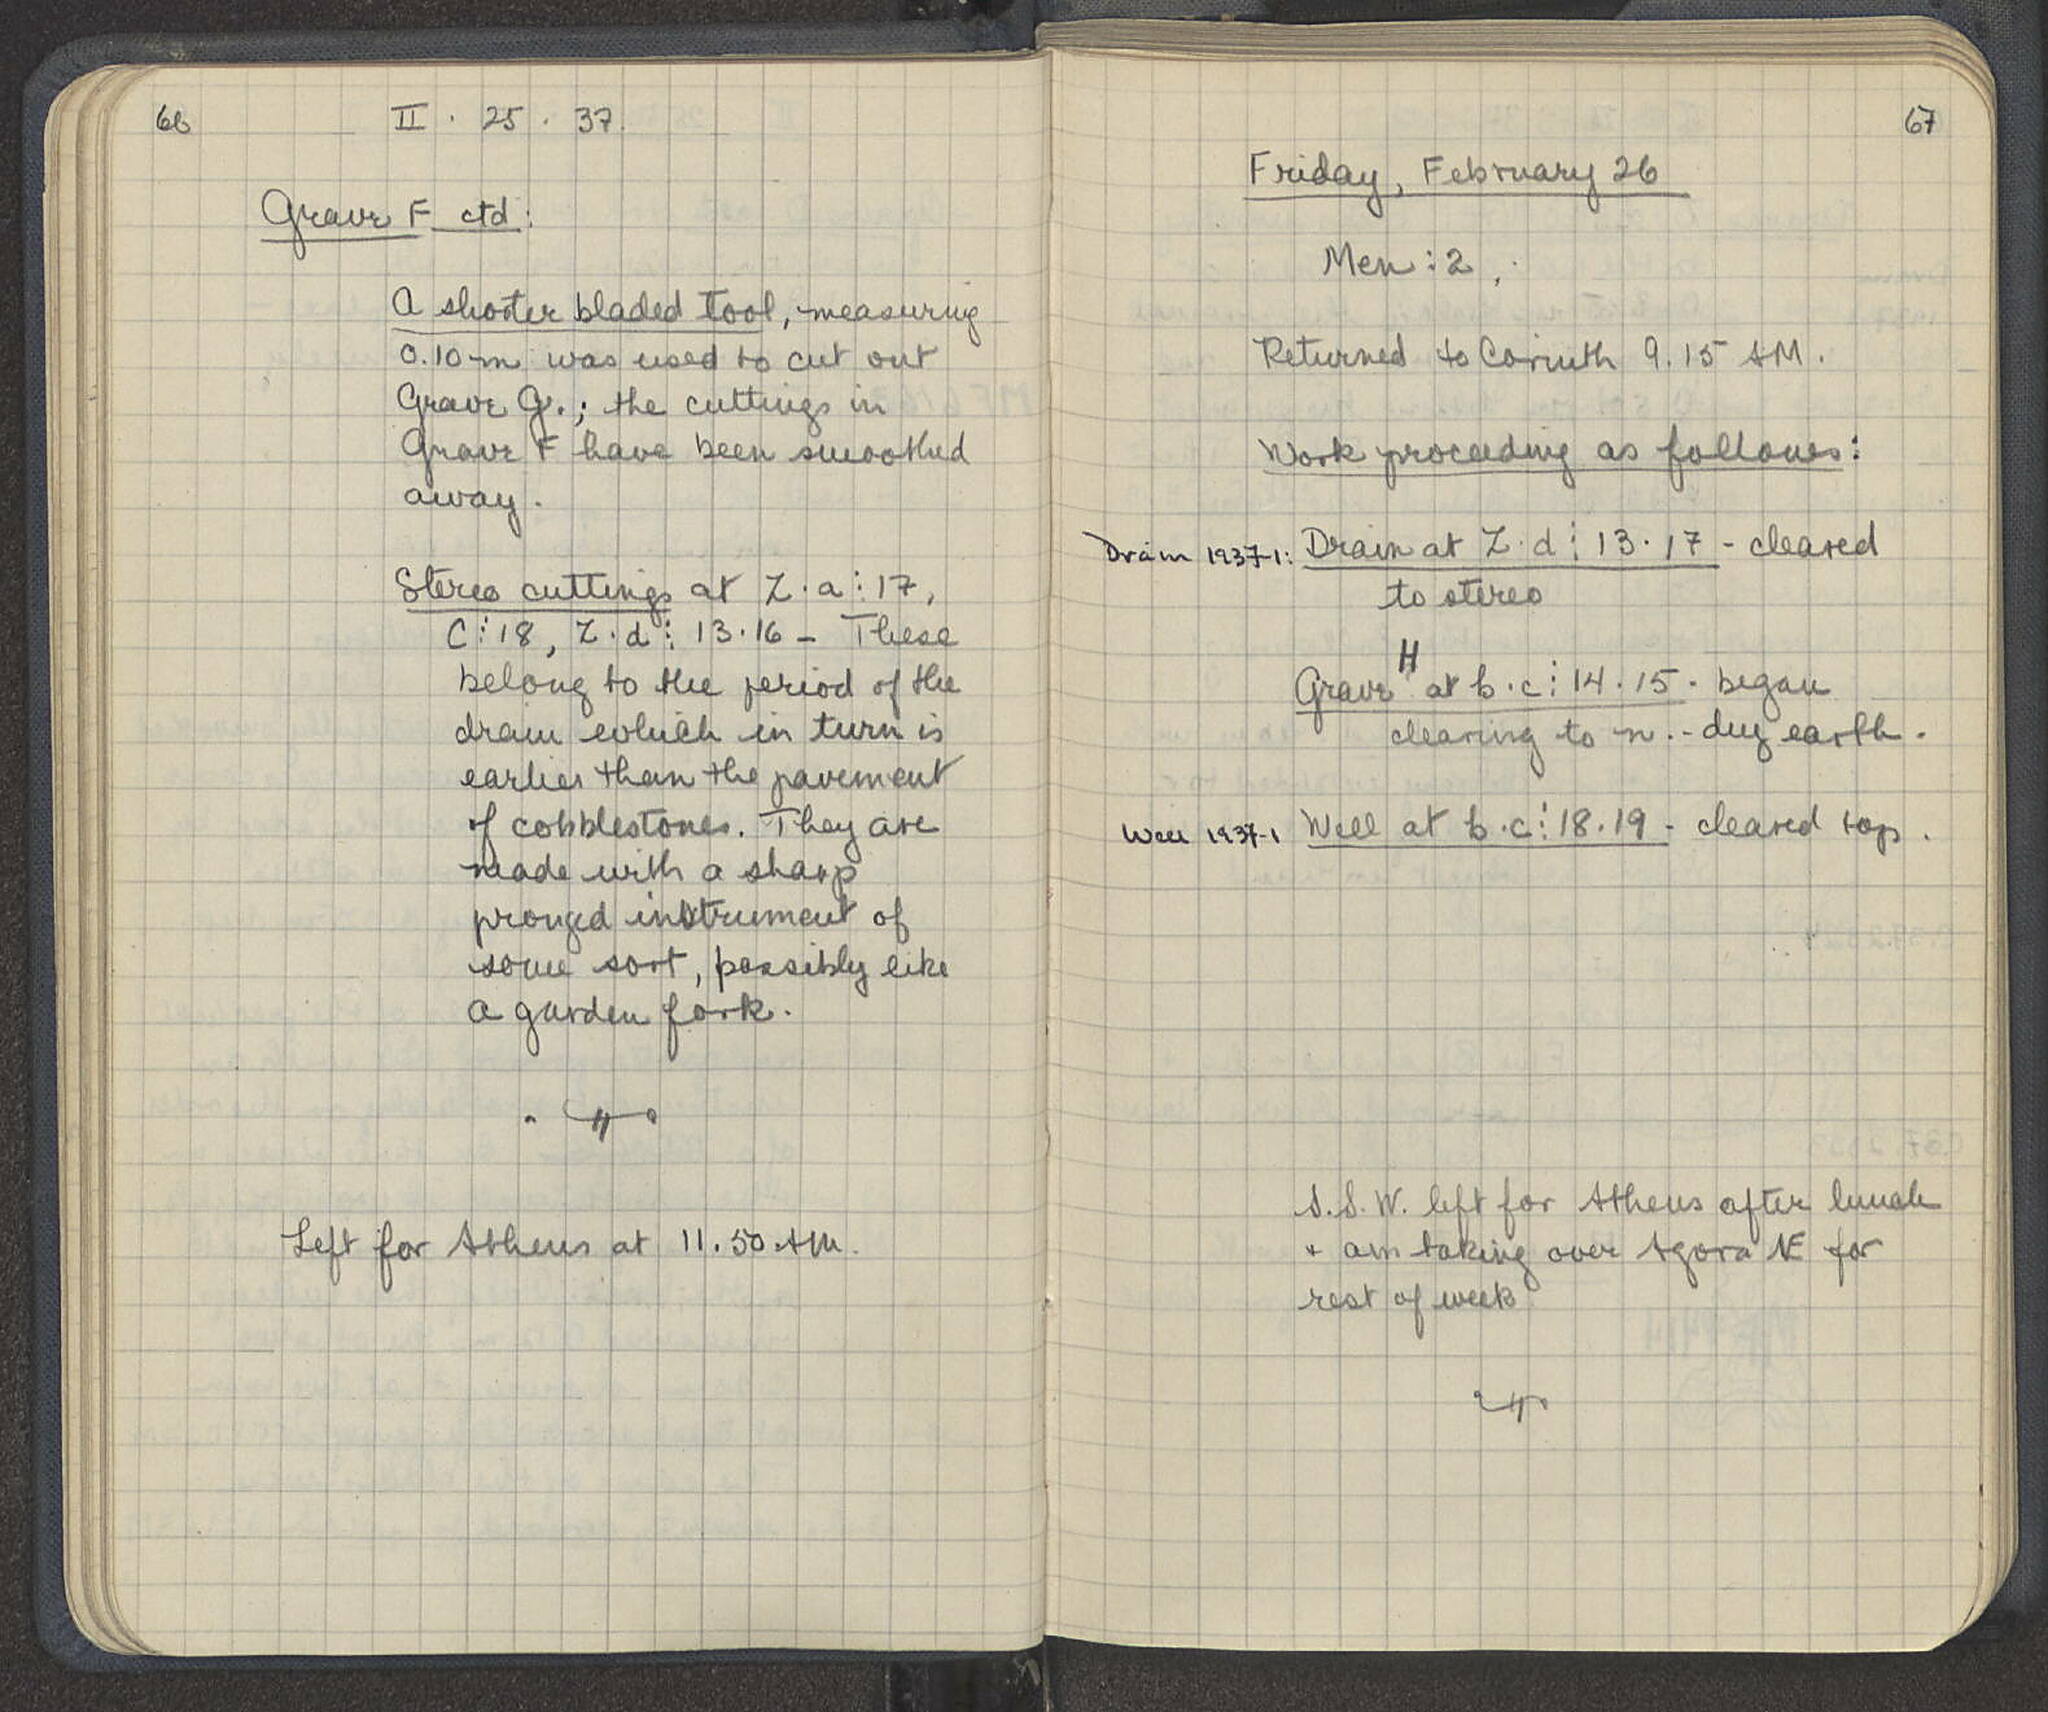 66
II . 25 . 37.
Grave F ctd:
A shorter bladed tool, measuring
0.10 m was used to cut out
Grave G.; the cuttings in
Grave F have been smoothed
away.
Stereo cuttings at Z.a:17,
C:18, Z.d: 13.16 - These
belong to the period of the
drain which in turn is
earlier than the pavement
of cobblestones. They are
made with a sharp
pronged instrument of
some sort, possibly like
a garden fork.
Left for Athens at 11.50 AM.
67
Friday, February 26
Men : 2.
Returned to Corinth 9.15 AM.
Work proceeding as follows:
Drain 1937-1: Drain at Z.d: 13.17 - cleared
to stereo
Grave H at b.c: 14.15 - began
clearing to n. - dug earth.
Well 1937-1 Well at b.c: 18.19 - cleared top.
S.S.W. left for Athens after lunch
+ am taking over Agora NE for
rest of week